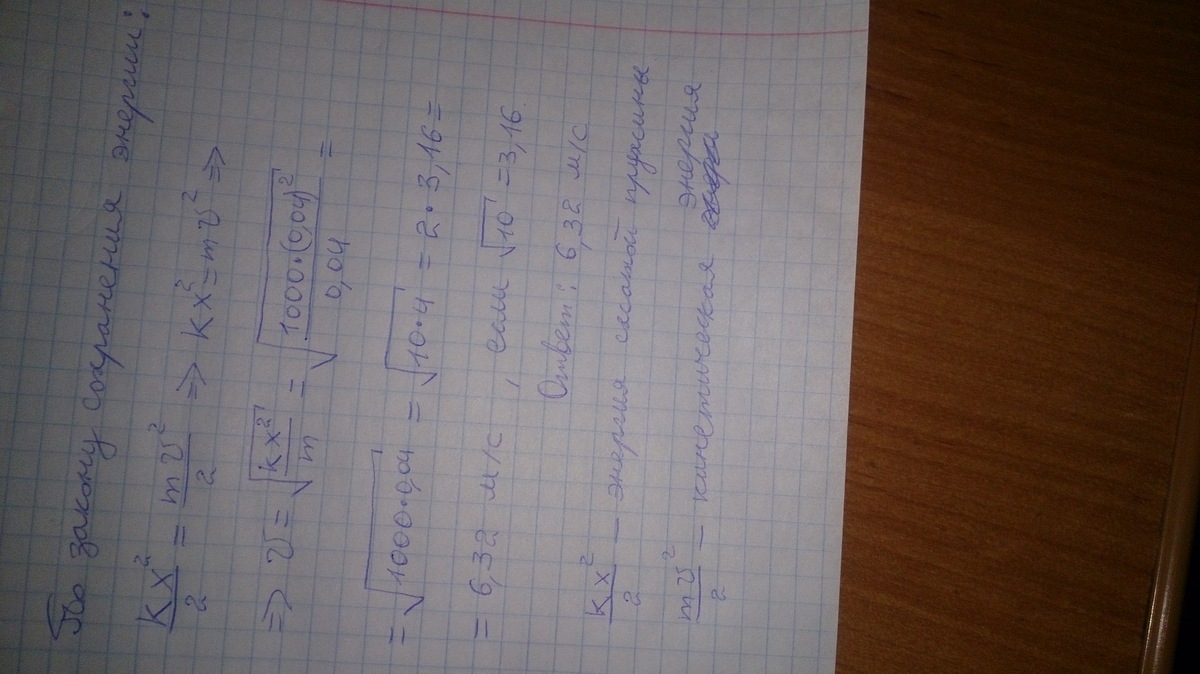 По закону сохранения энергии:
Kx²/2 = mv²/2 => Kx² = mv² =>
=> v = √(Kx²/m) = √(1000·(0,04)²/0,04) =
= √(1000·0,04) = √(10·4) = 2·3,16 =
= 6,32 м/с , если √10 = 3,16
Ответ: 6,32 м/с
Kx²/2 — энергия сжатой пружины
mv²/2 — кинетическая энергия